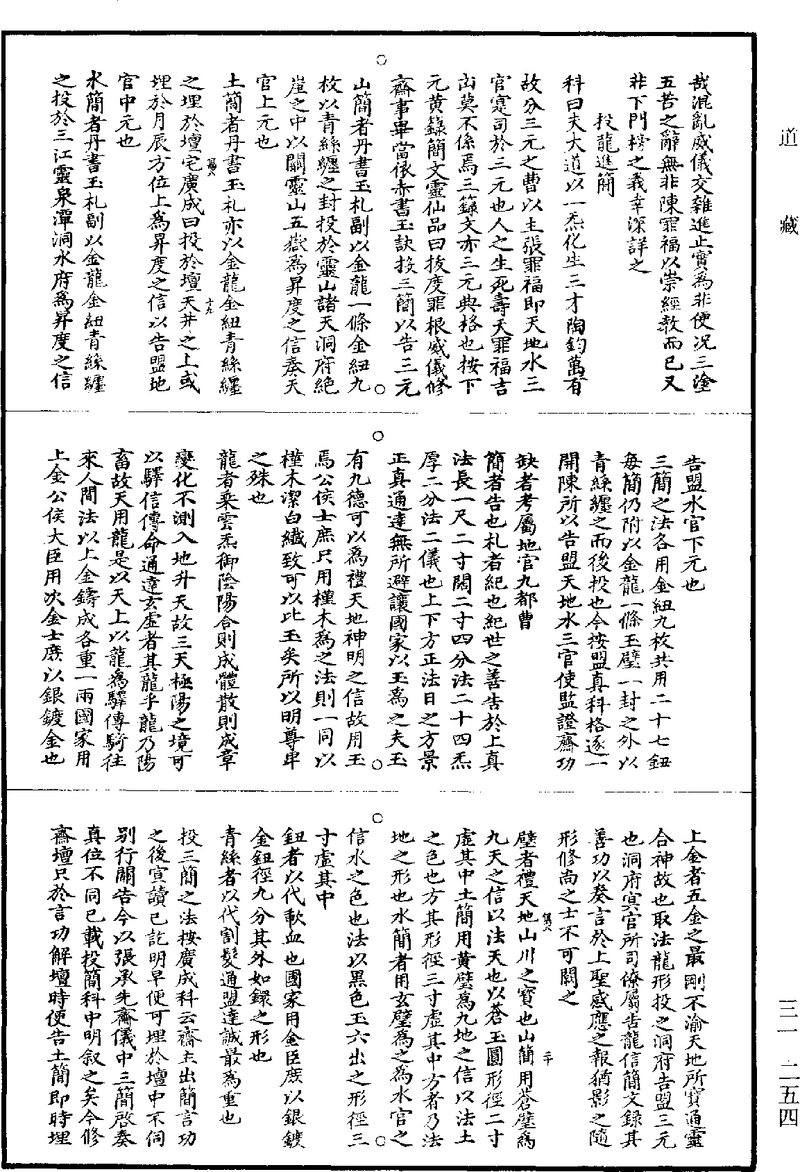 道藏
三一 二五四
哉混亂威儀交雜進止實為非便况三塗
五苦之辭無非陳罪福以崇經教而已又
非下門榜之義幸深詳之
投龍進簡
科曰夫大道以一炁化生三才陶鈞萬有
故分三元之曹以主張罪福即天地水三
官寔司於三元也人之生死壽夭罪福吉
凶莫不係焉三籙文亦三元典格也按下
元黃籙簡文靈仙品曰拔度罪根威儀修
齋事畢當依赤書玉訣投三簡以告三元
山簡者丹書玉札副以金龍一條金紐九
枚以青絲纏之封投於靈山諸天洞府絕
崖之中以關靈山五嶽為昇度之信奏天
官上元也
土簡者丹書玉札亦以金龍金紐青絲纏
之埋於壇宅廣成曰投於壇天井之上或
埋於月辰方位上為昇度之信以告盟地
官中元也
水簡者丹書玉札副以金龍金紐青絲纏
之投於三江靈泉潭洞水府為昇度之信
告盟水官下元也
三簡之法各用金紐九枚共用二十七鈕
每簡仍附以金龍一條玉璧一封之外以
青絲纏之而後投也今按盟真科格逐一
開陳所以告盟天地水三官使監證齋功
缺者考屬地官九都曹
簡者告也札者紀也紀世之善告於上真
法長一尺二寸闊二寸四分法二十四炁
厚二分法二儀也上下方正法日之方景
正真通達無所避讓國家以玉為之夫玉
有九德可以為禮天地神明之信故用玉
焉公侯士庶只用槿木為之法則一同以
槿木潔白纖致可以比玉矣所以明尊卑
之殊也
龍者乘雲炁御陰陽合則成體散則成章
變化不測入地升天故三天極陽之境可
以驛信傳命通達玄虛者其龍乎龍乃陽
畜故天用龍是以天上以龍為驛傳騎往
來人間法以上金鑄成各重一兩國家用
上金公侯大臣用次金士庶以銀鍍金也
上金者五金之最剛不渝天地所寶通靈
合神故也取法龍形投之洞府告盟三元
也洞府冥官所司僚屬告龍信簡文錄其
善功以奏言於上聖感應之報猶影之隨
形修尚之士不可闕之
璧者禮天地山川之寶也山簡用蒼璧為
九天之信以法天也以蒼玉圓形徑二寸
虛其中土簡用黃璧為九地之信以法土
之色也方其形徑三寸虛其中方者乃法
地之形也水簡者用玄璧為之為水官之
信水之色也法以黑色玉六出之形徑三
寸虛其中
鈕者以代歃血也國家用金臣庶以銀鍍
金鈕徑九分其外如錄之形也
青絲者以代割髮通盟達誠最為重也
投三簡之法按廣成科云齋主出簡言功
之後宣讀已訖明早便可埋於壇中不伺
別行關告今以張承先齋儀中三簡啓奏
真位不同已載投簡科中明叙之矣今修
齋壇只於言功解壇時便告土簡即時埋